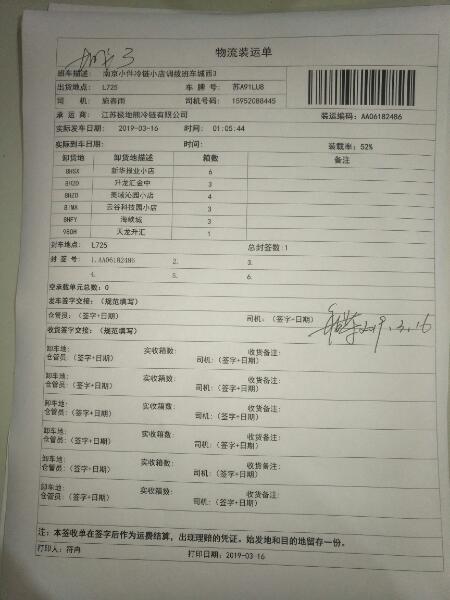 物流装运单
班车描述: 南京小件冷链小店调拨班车城西3
出货地点: L725 车 牌 号: 苏A91LU8
司 机: 施春雨 司机号码: 15952088445
承 运 商: 江苏极地熊冷链有限公司 装运编码: AA06182486
实际发车日期: 2019-03-16 时间: 01:05:44
实际到车日期: 时间: 装载率: 52%
卸货地 卸货地描述 箱数 备注
BHSX 新华报业小店 6
BHZO 升龙汇金中 3
BHZD 莱域沁园小店 4
B1WA 云谷科技园小店 3
BNFY 海峡城 3
980H 天龙升汇 1
封车地点: L725 总封签数:1
封 签 号: 1.AA06182486 2. 3.
4. 5. 6.
空承载单元总数: 0
发车签字交接: (规范填写)
仓管员: (签字+日期) 司机: (签字+日期) 2019.3.16
收货签字交接: (规范填写)
卸车地: 实收箱数: 收货备注:
仓管员: (签字+日期) 司机: (签字+日期)
卸车地: 实收箱数: 收货备注:
仓管员: (签字+日期) 司机: (签字+日期)
卸车地: 实收箱数: 收货备注:
仓管员: (签字+日期) 司机: (签字+日期)
卸车地: 实收箱数: 收货备注:
仓管员: (签字+日期) 司机: (签字+日期)
卸车地: 实收箱数: 收货备注:
仓管员: (签字+日期) 司机: (签字+日期)
卸车地: 实收箱数: 收货备注:
仓管员: (签字+日期) 司机: (签字+日期)
注: 本签收单在签字后作为运费结算, 出现理赔的凭证。始发地和目的地留存一份。
打印人: 符冉 打印日期: 2019-03-16